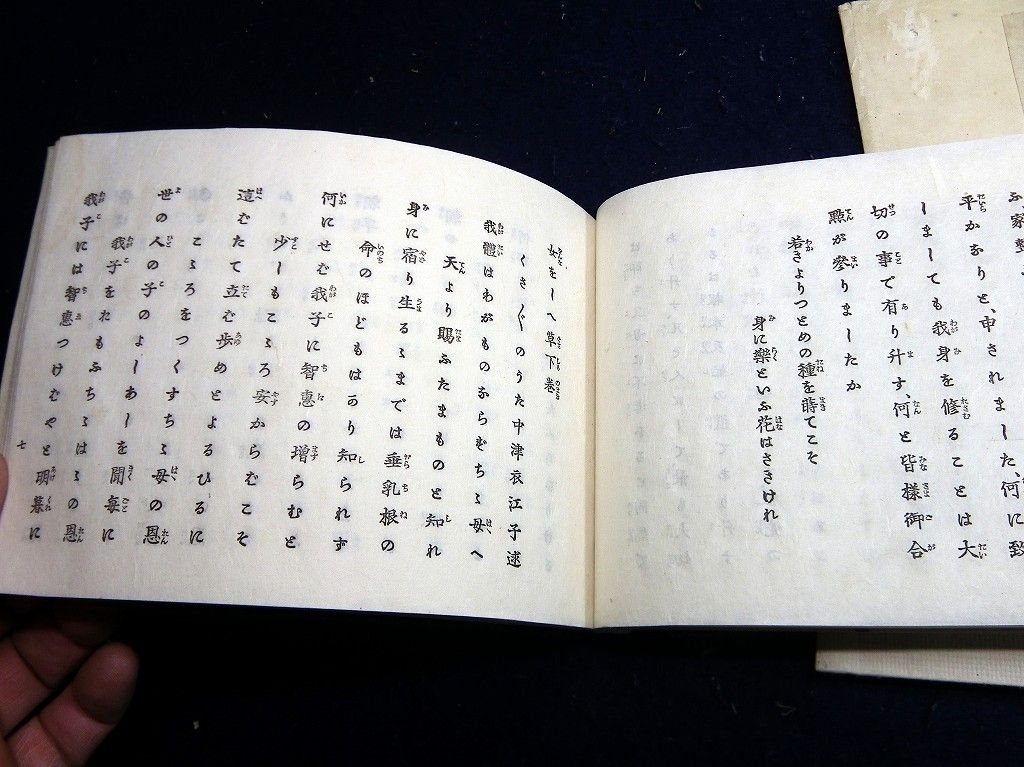 平かなりと、申されました、何に致
しましても我身を修ることは大
切の事で有り升す、何と皆様御合
點が參りましたか
若きよりつとめの種を蒔てこそ
身に樂といふ花はさきけれ
女をしへ草下卷
くさ〴〵のうた中津衣江子述
我體はわがものならずちゝ母へ
天より賜ふたまものと知れ
身に宿り生るゝまでは垂乳根の
命のほどもはかり知られず
何にせむ我子に智惠の增らむと
少しもこゝろ安からむこそ
這むたて立む歩めとよるひるに
こゝろをつくすちゝ母の恩
世の人の子のよしあしを聞每に
我子をおもふちゝはゝの恩
我子には智惠つけむやと明暮に
七